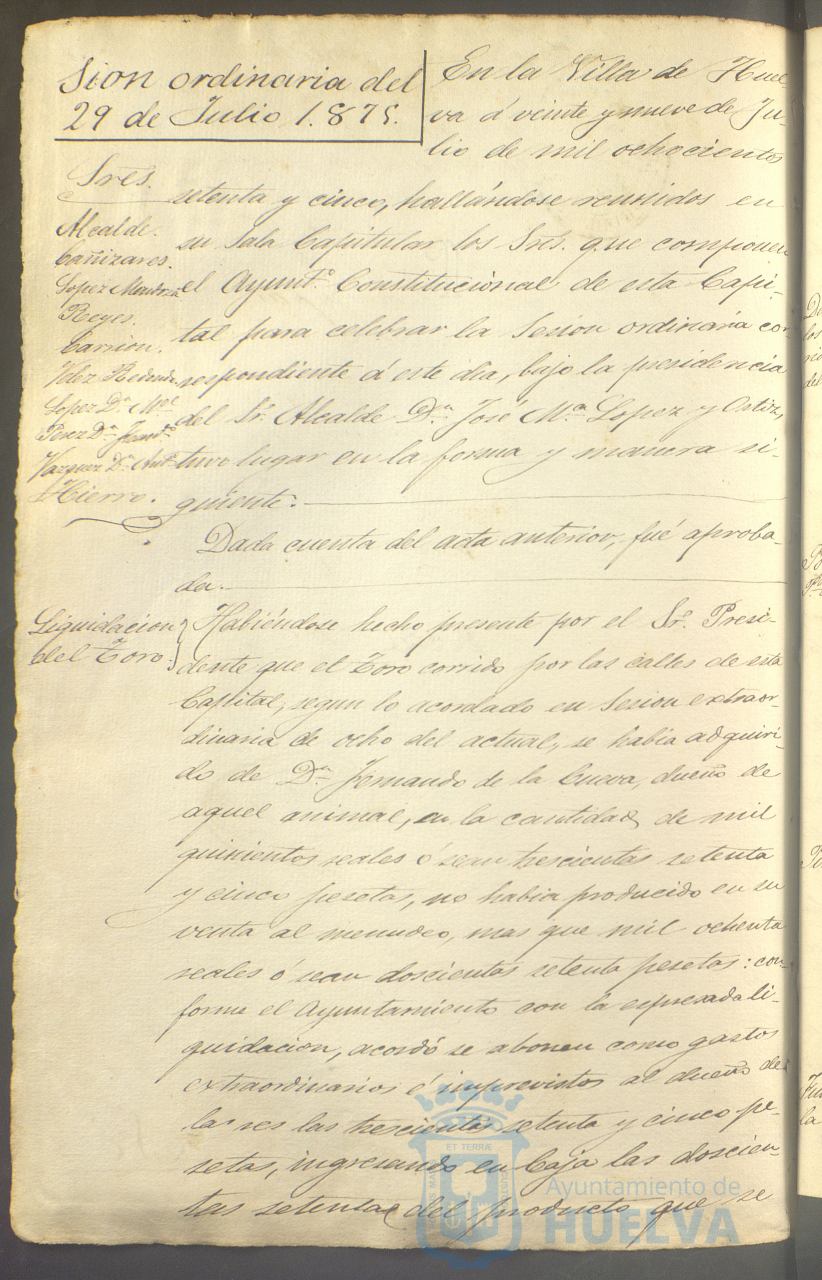 Sion ordinaria del
29 de Julio 1.875.
Sres.
Alcalde.
Cañizares.
Lopez
Reyes.
Carrion.
Velez Redondo
Lopez Dn. Ml.
Perez Dn. Ferndo.
Vazquez Dn. Anto.
Hierro.
En la Villa de Huel-
va á veinte y nueve de Ju-
lio de mil ochocientos
setenta y cinco, hallándose reunidos en
su Sala Capitular los Sres. que componen
el Ayunto. Constitucional de esta Capi-
tal para celebrar la Sesion ordinaria cor-
respondiente á este dia, bajo la presidencia
del Sr. Alcalde Dn. José Ma. Lopez y Ortiz,
tuvo lugar en la forma y manera si-
guiente:
Dada cuenta del acta anterior, fué aproba-
da.
Liquidacion
del Toro.
Habiéndose hecho presente por el Sr. Presi-
dente que el Toro corrido por las calles de esta
Capital, segun lo acordado en Sesion extraor-
dinaria de ocho del actual, se habia adquiri-
do de Dn. Fernando de la Cueva, dueño de
aquel animal, en la cantidad de mil
quinientos reales ó sean trescientas setenta
y cinco pesetas, no habia producido en su
venta al menudeo, mas que mil ochenta
reales ó sean doscientas setenta pesetas: con-
forme el Ayuntamiento con la espresada li-
quidacion, acordó se abonen como gastos
extraordinarios é imprevistos al dueño de
la res las trescientas setenta y cinco pe-
setas, ingresando en Caja las doscien-
tas setenta del producto que se
ET TERRÆ
Ayuntamiento de
HUELVA